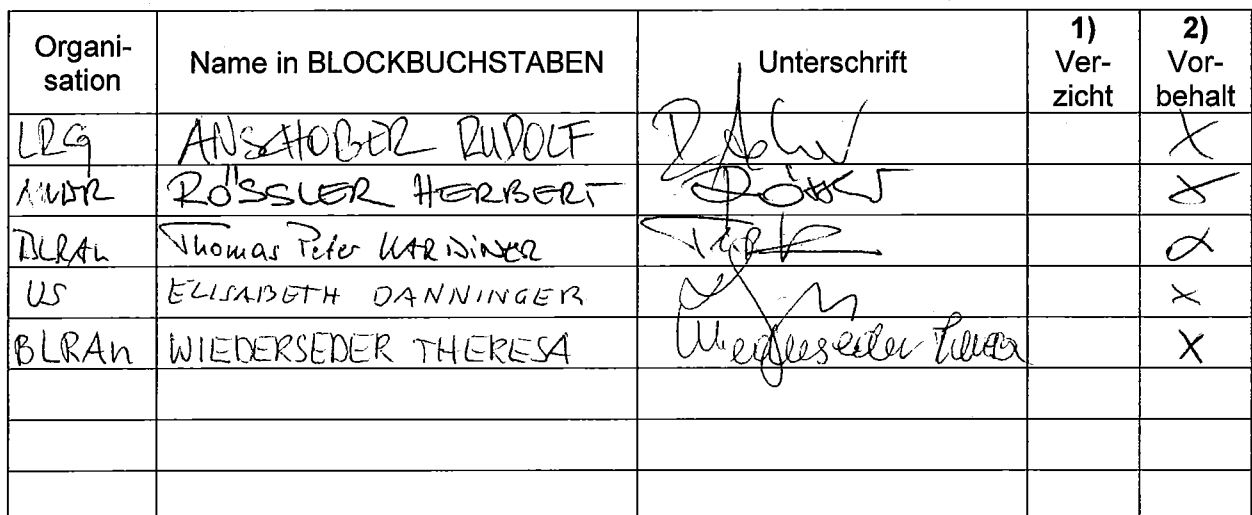 Organi-
sation
Name in BLOCKBUCHSTABEN
Unterschrift
1)
Ver-
zicht
2)
Vor-
behalt
LRG ANSCHOBER RUDOLF X
RÖSSLER HERBERT X
BLRAn Thomas Peter X
US ELISABETH DANNINGER X
BLRAn WIEDERSEDER THERESA Wiederseder Theresa X